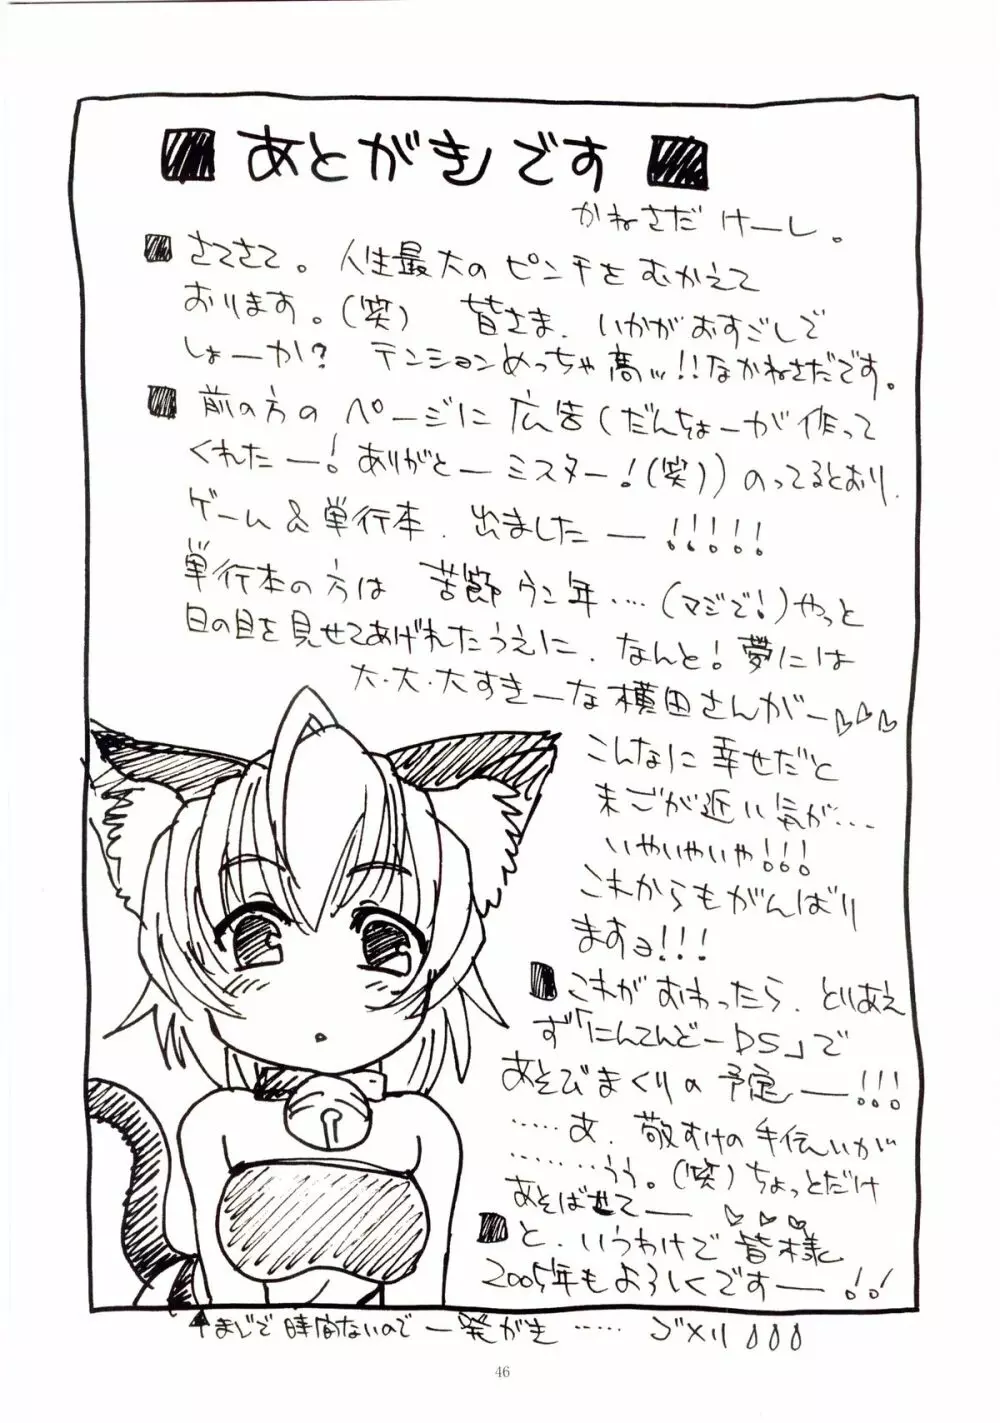 あとがきです
かねさだ けーし。
さてさて。人生最大のピンチをむかえて
おります。(笑) 皆さま、いかがおすごしで
しょーか? テンションめっちゃ高ッ!!なかねさだです。
前の方のページに広告(だんちょーが作って
くれたー!ありがとーミスター!(笑))のってるとおり、
ゲーム&単行本、出ましたー!!!!!
単行本の方は 苦節ウン年‥‥(マジで!)やっと
日の目を見せてあげれたうえに、なんと!夢には
大・大・大すきーな横田さんがー♡♡♡
こんなに幸せだと
まごが近い気が‥‥
いやいやいや!!!
これからもがんばり
ますョ!!!
これがおわったら、とりあえ
ず「にんてんどーDS」で
あそびまくりの予定ー!!!
‥‥‥あ、敬すけの手伝いが
‥‥‥‥うう。(笑)ちょっとだけ
あそばせてー♡♡♡
と、いうわけで皆様
2005年もよろしくですー!!
↑まじで時間ないので一発がき‥‥‥ゴメリ
46